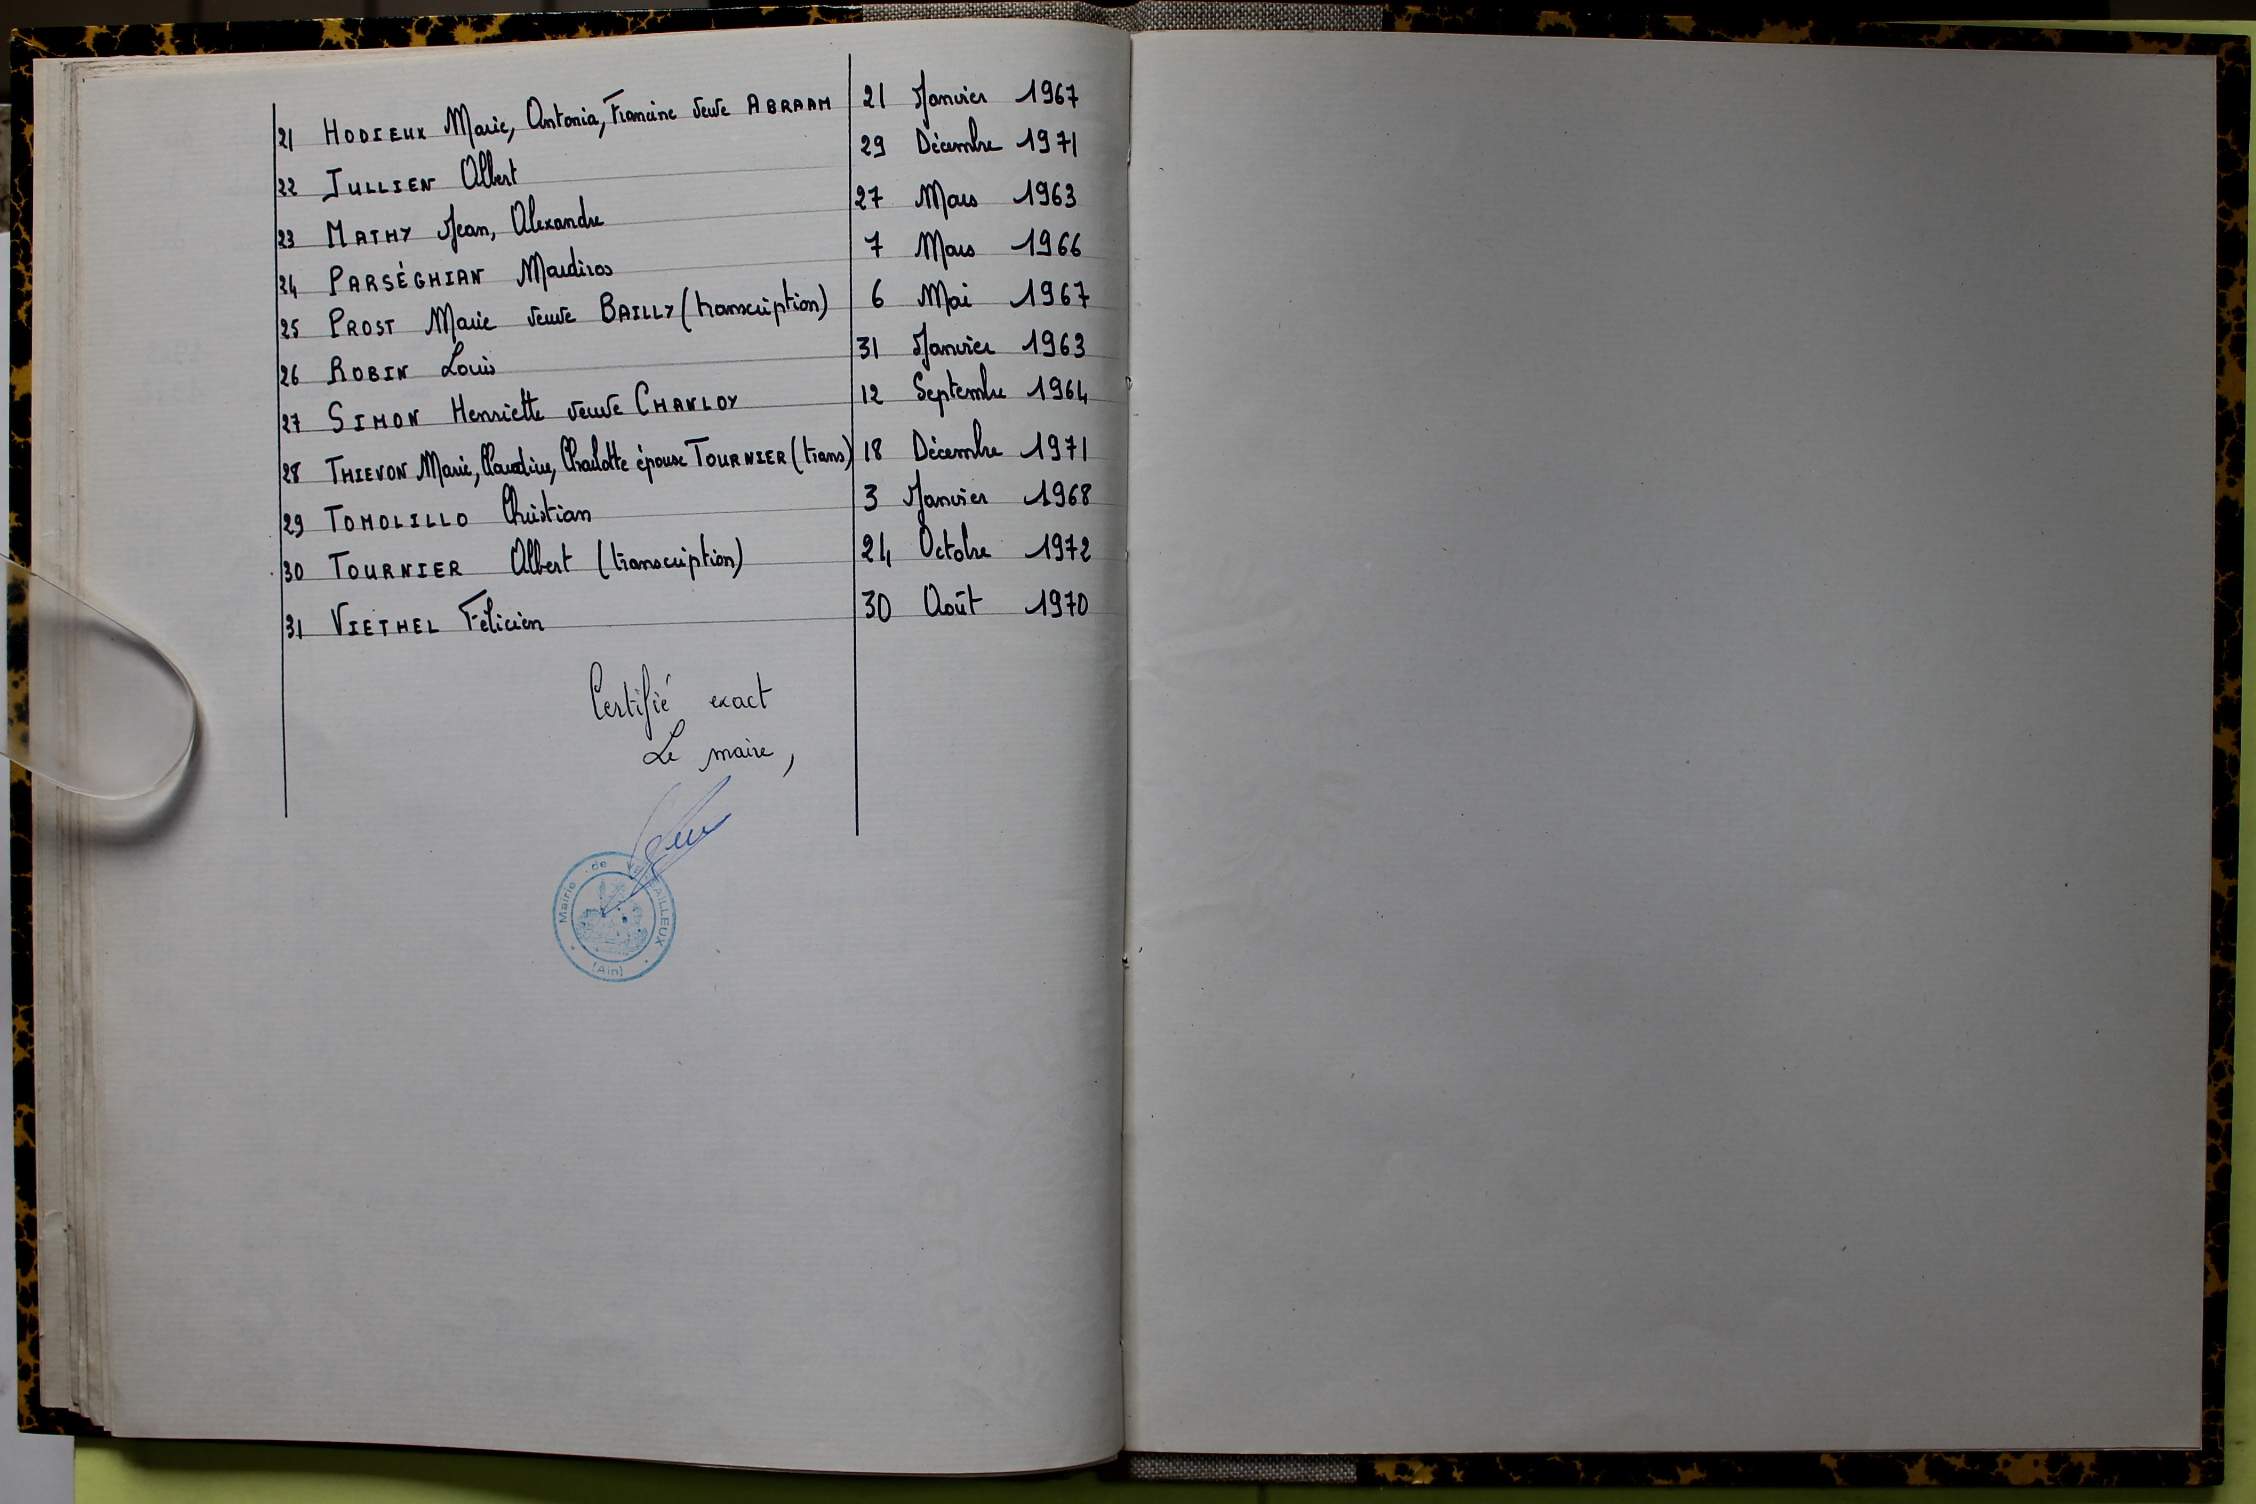 21 HODIEUX Marie, Antonia, Francine veuve ABRAAM 21 Janvier 1967
22 JULLIEN Albert 29 Décembre 1971
23 MATHY Jean, Alexandre 27 Mars 1963
24 PARSÉGHIAN Mardiros 7 Mars 1966
25 PROST Marie veuve BAILLY (transcription) 6 Mai 1967
26 ROBIN Louis 31 Janvier 1963
27 SIMON Henriette veuve CHANLOY 12 Septembre 1964
28 THIEVON Marie, Claudine, Charlotte épouse TOURNIER (trans) 18 Décembre 1971
29 TOMOLILLO Christian 3 Janvier 1968
30 TOURNIER Albert (transcription) 24 Octobre 1972
31 VIETHEL Félicien 30 Août 1970
Certifié exact
Le maire,
Mairie de
(Ain)